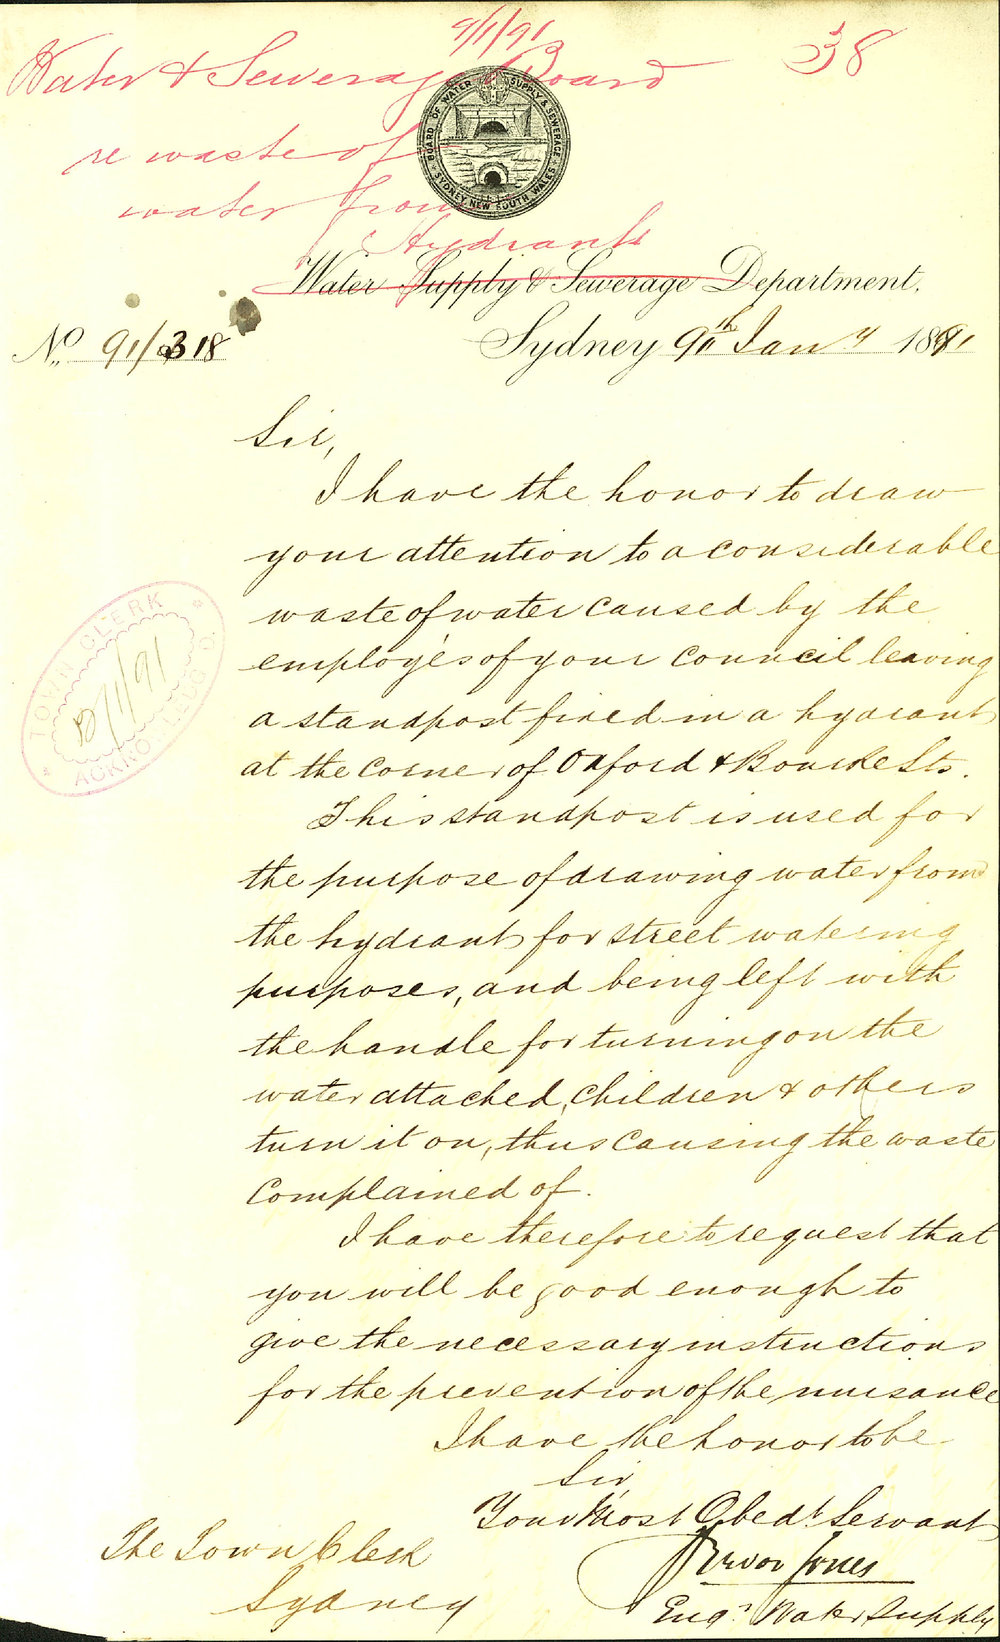 9/1/91
38
Water & Sewerage Board
re waste of
water from
Hydrants
BOARD OF WATER SUPPLY & SEWERAGE
SYDNEY, NEW SOUTH WALES
Water Supply & Sewerage Department,
No. 91/318
Sydney 9th Jany 1891
Sir,
I have the honor to draw
your attention to a considerable
waste of water caused by the
employés of your Council leaving
a standpost fixed in a hydrant
at the corner of Oxford & Bourke Sts.
This standpost is used for
the purpose of drawing water from
the hydrant for street watering
purposes, and being left with
the handle for turning on the
water attached, children & others
turn it on, thus causing the waste
complained of.
I have therefore to request that
you will be good enough to
give the necessary instructions
for the prevention of the nuisance
I have the honor to be
Sir,
Your Most Obedt Servant
Trevor Jones
Engr Water Supply
The Town Clerk
Sydney
TOWN CLERK
/1/91
ACKNOWLEDGED